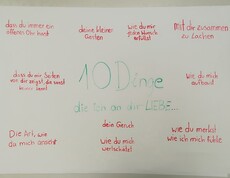 dass du immer ein
offenes Ohr hast
deine kleinen
Gesten
wie du mir
jeden Wunsch
erfüllst
Mit dir zusammen
zu Lachen
dass du Seiten
von dir zeigst, die sonst
keiner kennt
10 Dinge
die ich an dir LIEBE...
wie du mich
aufbaust
Die Art, wie
du mich ansiehst
dein Geruch
wie du mich
wertschätzt
wie du merkst
wie ich mich fühle